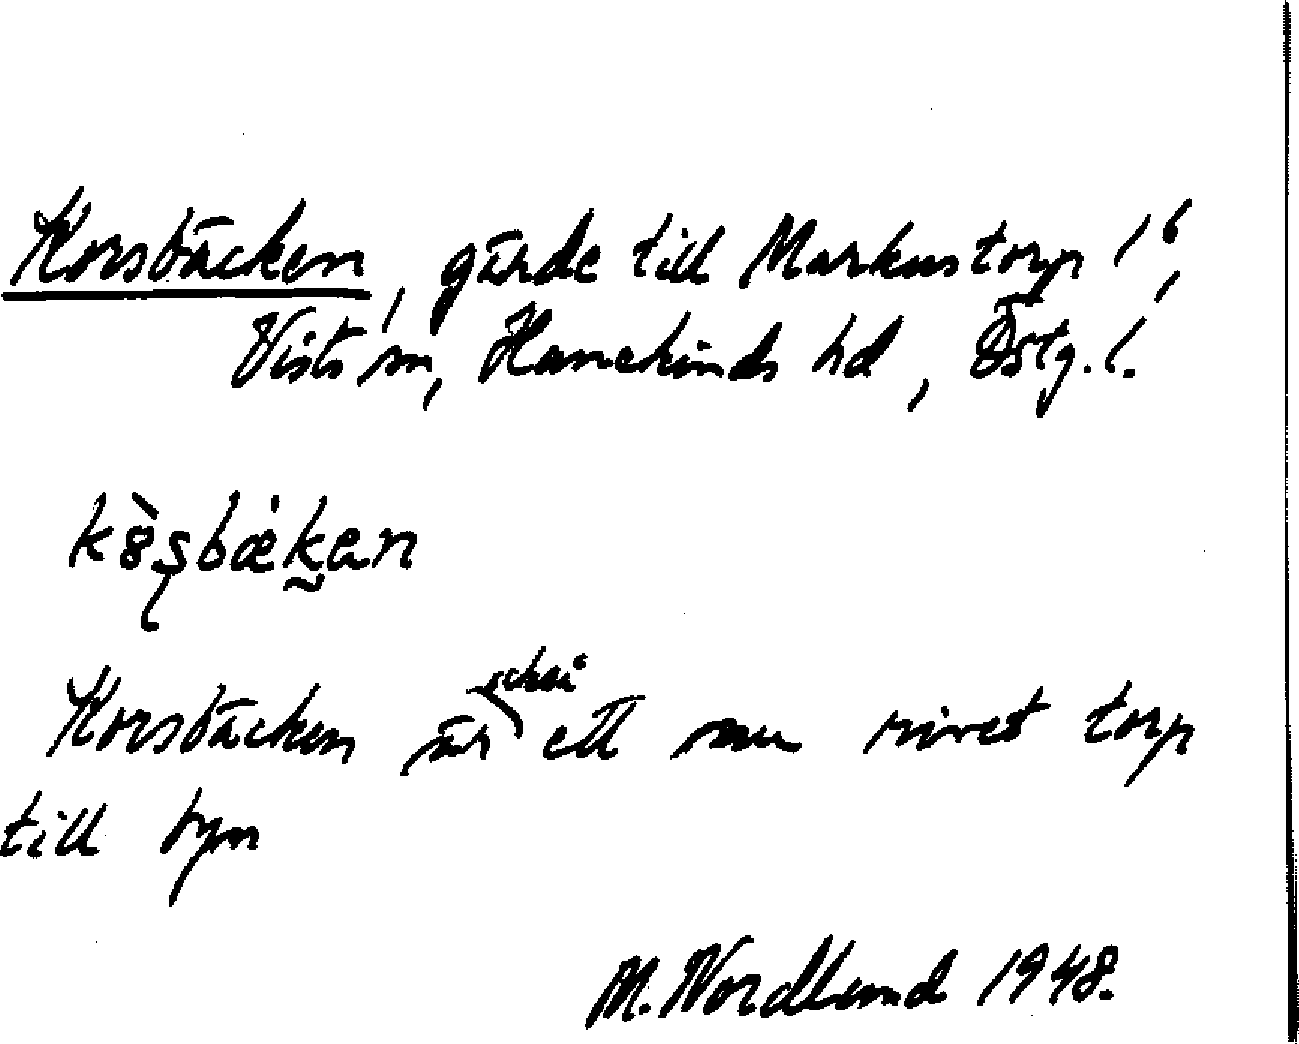 Korsbäcken, gärde till Markustorp 1⁶,
Vists sn, Hanekinds hd, Östg. l.
kò̤şbæ̀ken
Korsbäcken är också ett nu rivet torp
till byn
M. Nordlund 1948.